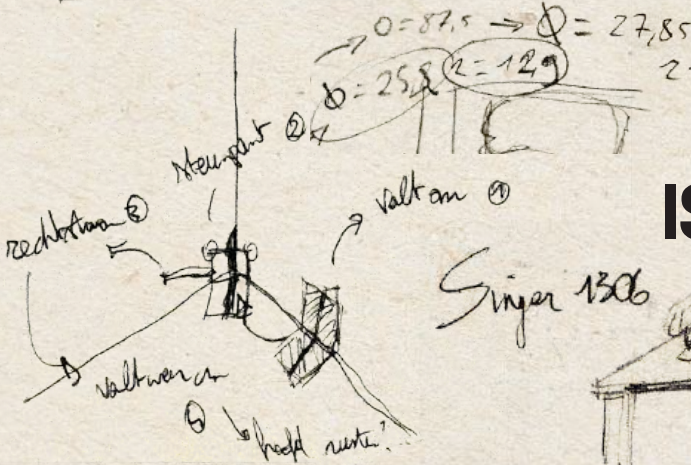 O=87,5 → Ø = 27,85
Ø = 25,8 r = 12,9
2=
steunpunt ②
valt om ①
rechtstaan ③
IS
Singer 1306
valt weer om
④ hoofd rusten?...